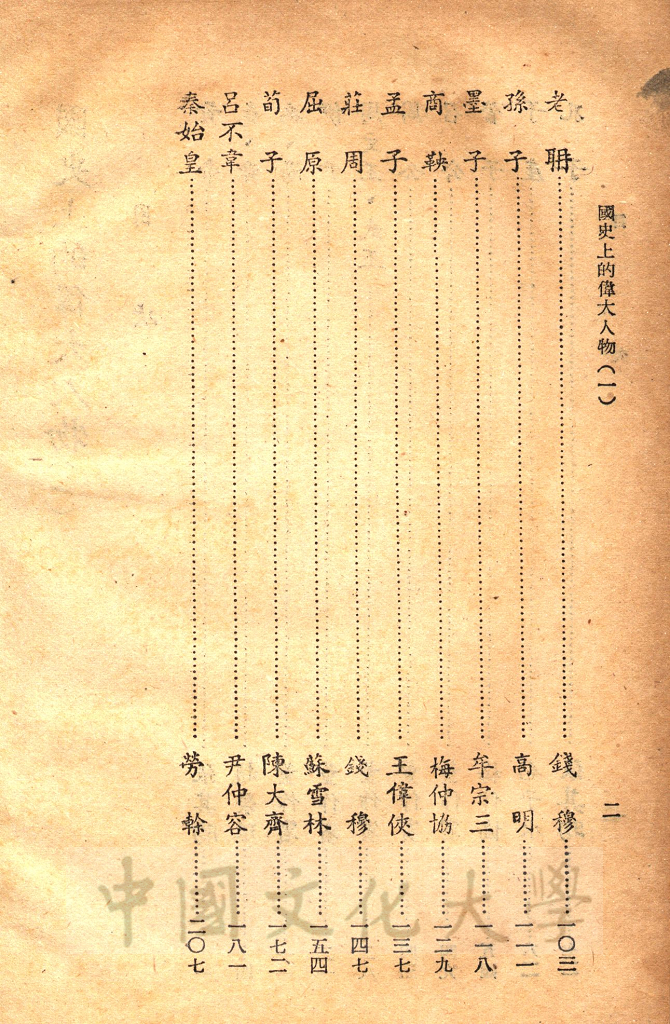 國史上的偉大人物(一)
二
老聃 錢穆 一〇三
孫子 高明 一一一
墨子 牟宗三 一一八
商鞅 梅仲協 一二九
孟子 王偉俠 一三七
莊周 錢穆 一四七
屈原 蘇雪林 一五四
荀子 陳大齊 一七二
呂不韋 尹仲容 一八一
秦始皇 勞榦 二〇七
中國文化大學